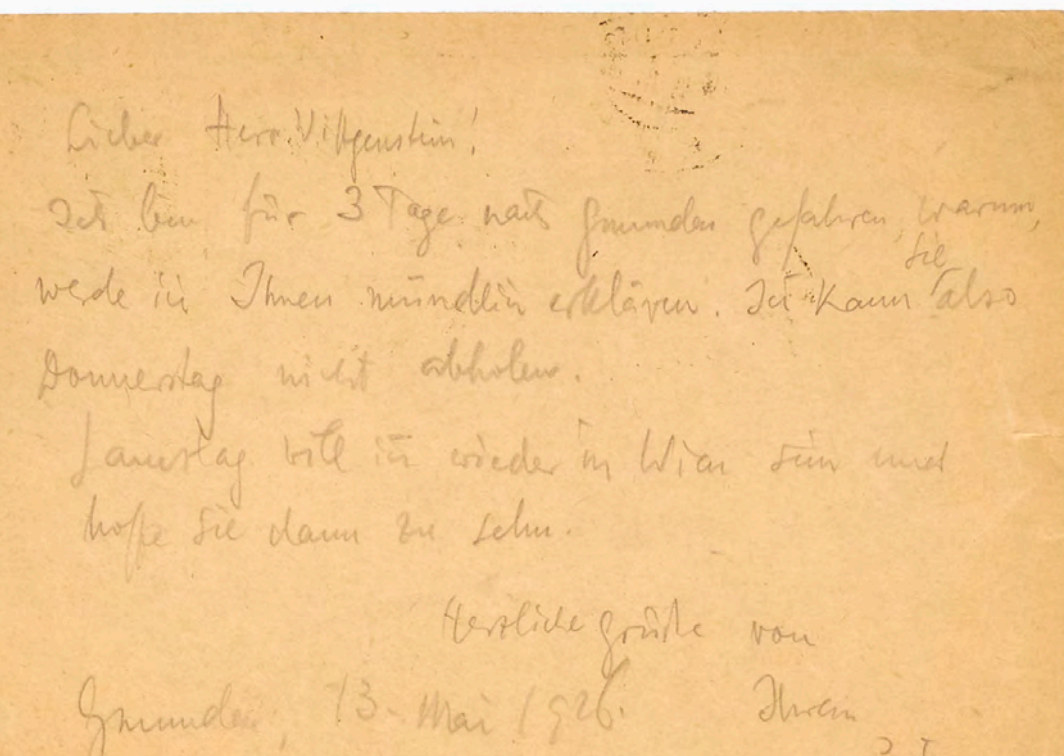 Lieber Herr Wittgenstein!
Ich bin für 3 Tage nach Gmunden gefahren, warum,
werde ich Ihnen mündlich erklären. Ich kann Sie also
Donnerstag nicht abholen.
Samstag will ich wieder in Wien sein und
hoffe Sie dann zu sehn.
Herzliche Grüße von
Gmunden, 13. Mai 1926. Ihrem